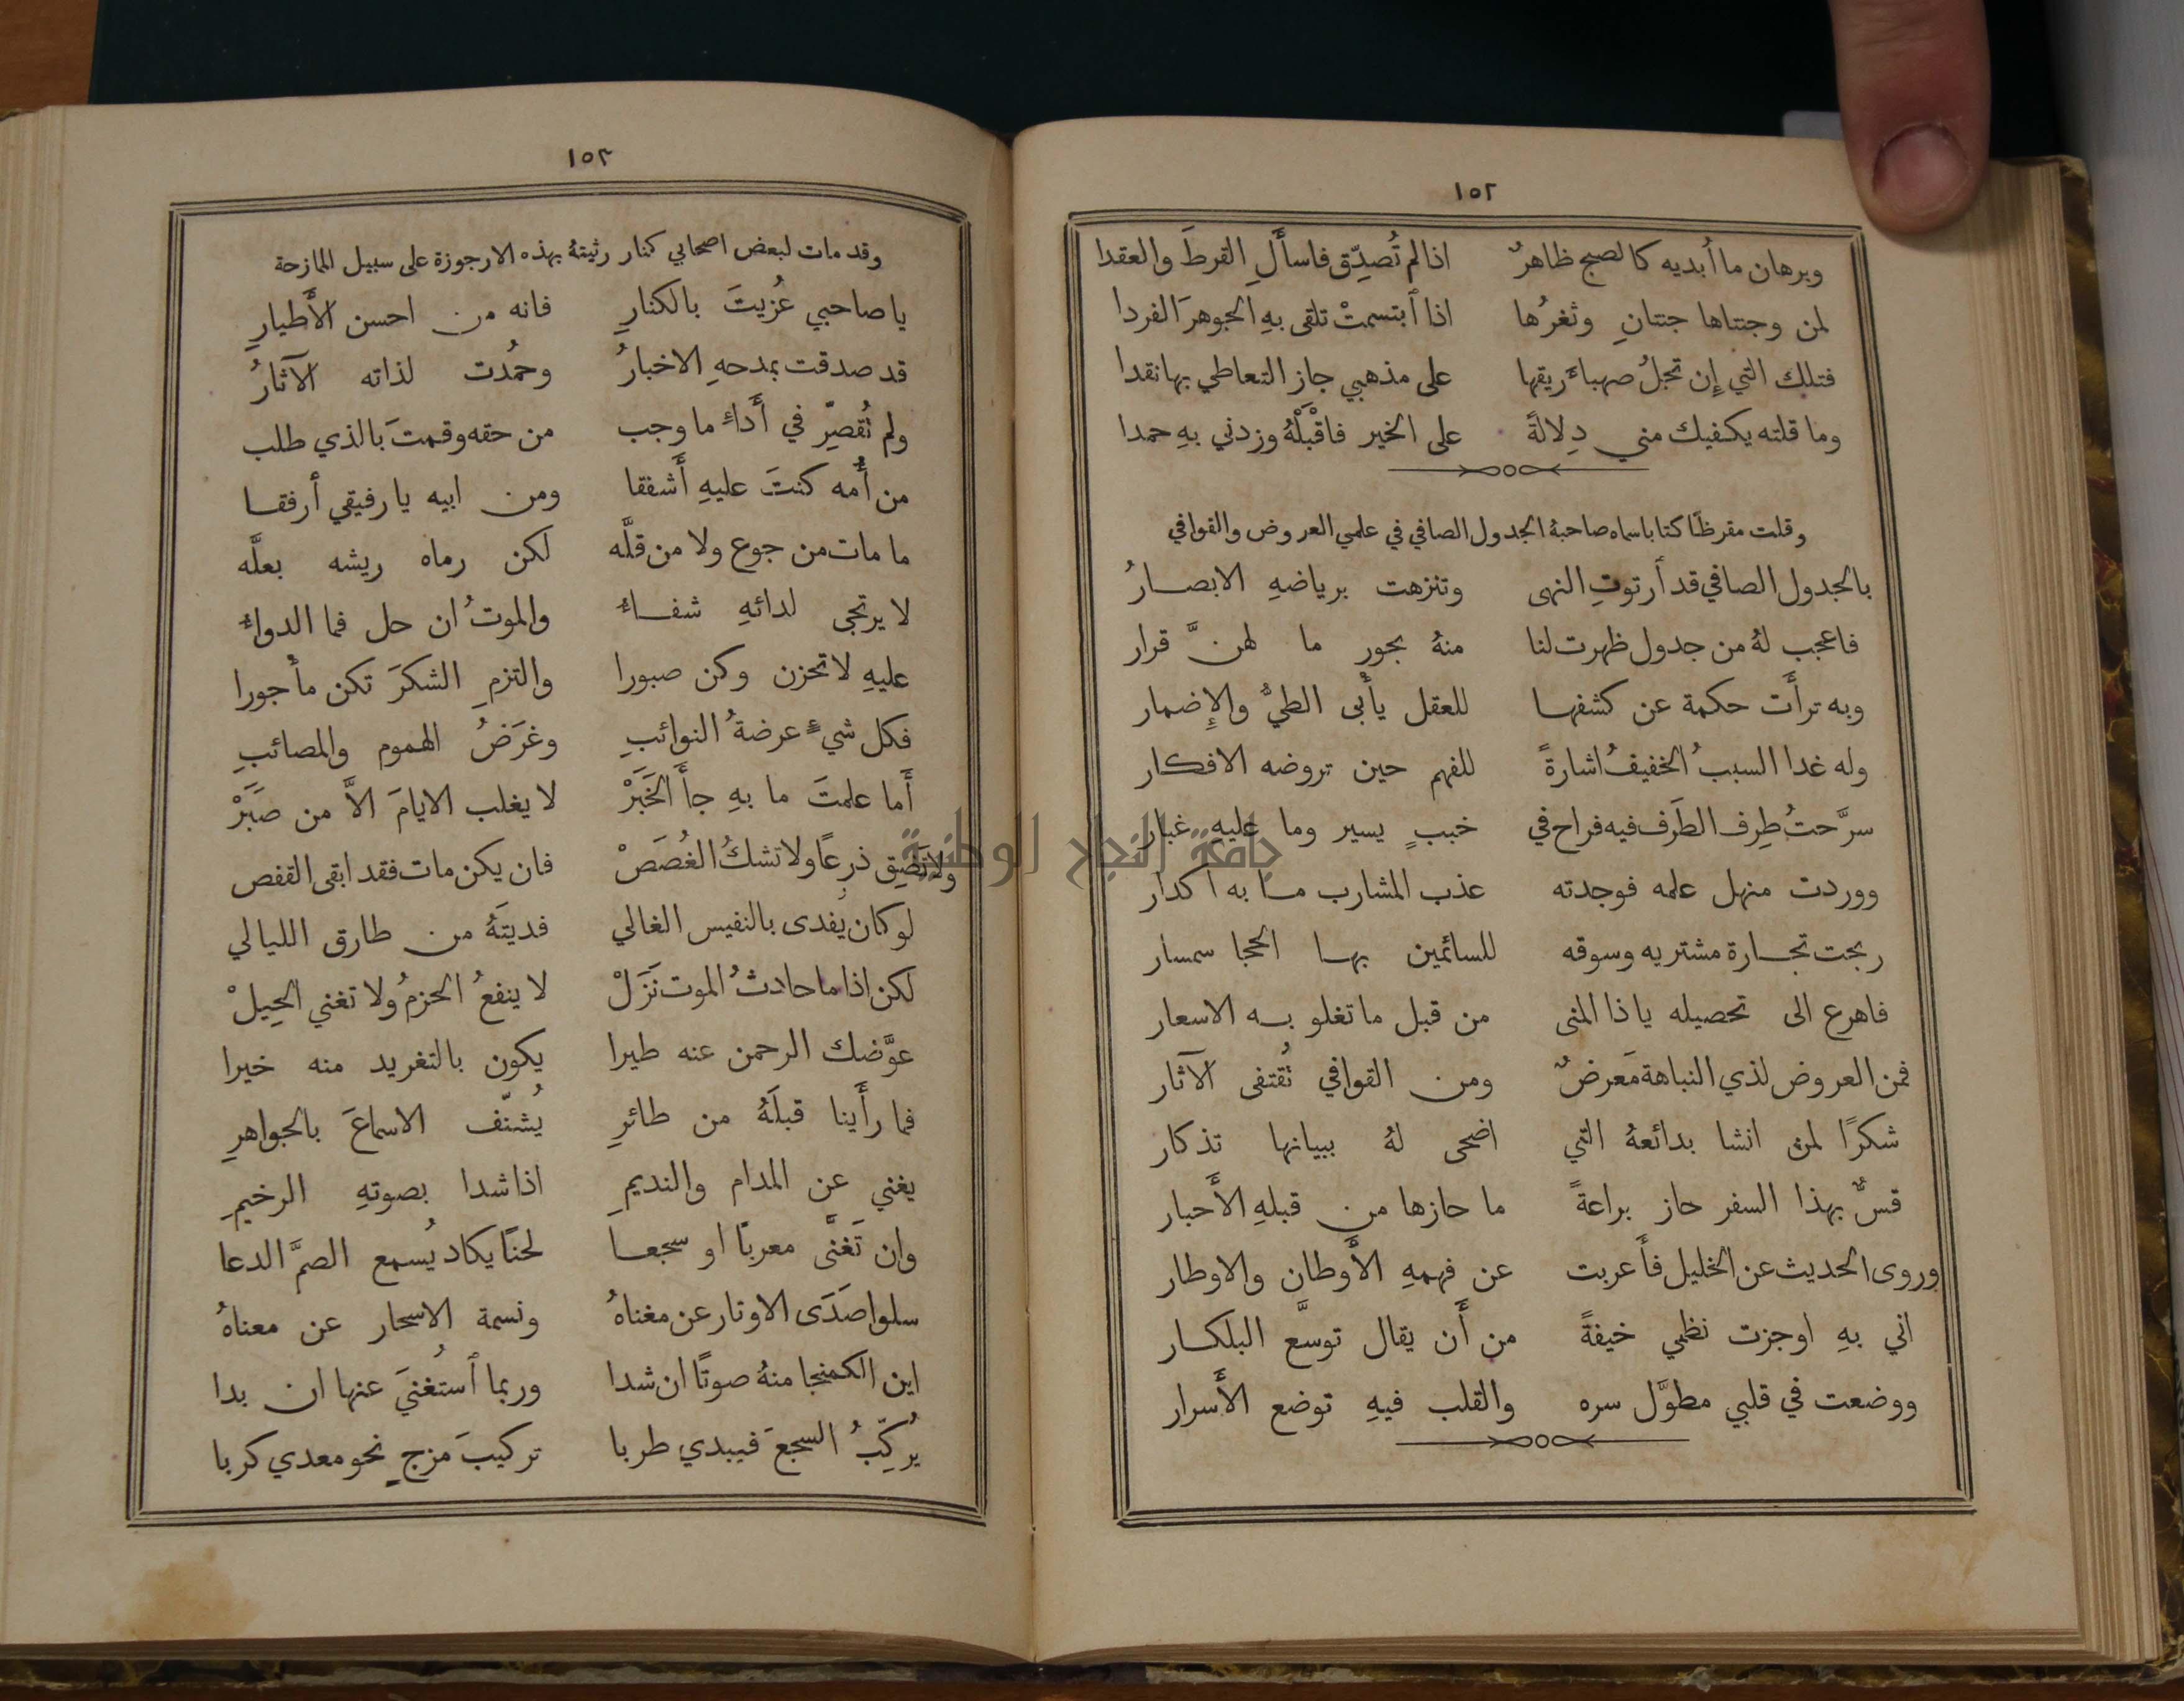 ١٥٢
وبرهان ما أبديه كالصبح ظاهرٌ اذا لم تُصدِّق فاسأَلِ القرطَ والعقدا
لمن وجنتاها جنتانِ وثغرُها اذا ٱبتسمتْ تلقى بهِ الجوهرَ الفردا
فتلك التي إِن تجلُ صهباءَ ريقها على مذهبي جاز التعاطي بها نقدا
وما قلته يكفيك مني دِلالةً على الخير فاقْبَلْهُ وزدني بهِ حمدا
وقلت مقرظًا كتابا سماه صاحبهُ الجدول الصافي في علمي العروض والقوافي
بالجدول الصافي قد أرتوتِ النهى وتنزهت برياضهِ الابصارُ
فاعجب لهُ من جدول ظهرت لنا منهُ بحور ما لهنَّ قرار
وبه ترأَت حكمة عن كشفها للعقل يأبى الطيُّ والإِضمار
وله غدا السببُ الخفيفُ اشارةً للفهم حين تروضه الافكار
سرَّحتُ طِرف الطَرف فيه فراح في خببٍ يسير وما عليهِ غبار
ووردت منهل علمه فوجدته عذب المشارب ما به اكدار
ربحت تجارة مشتريه وسوقه للسائمين بها الحجا سمسار
فاهرع الى تحصيله ياذا المنى من قبل ما تغلو به الاسعار
فمن العروض لذي النباهة مَعرضٌ ومن القوافي تُقتفى الآثار
شكرًا لمن انشا بدائعهُ التي اضحى لهُ ببيانها تذكار
قسٌّ بهذا السفر حاز براعةً ما حازها من قبلهِ الأَحبار
وروى الحديث عن الخليل فأَعربت عن فهمهِ الأَوطان والاوطار
اني بهِ اوجزت نظمي خيفةً من أَن يقال توسَّع البلكار
ووضعت في قلبي مطوَّل سره والقلب فيهِ توضع الأَسرار
١٥٣
وقد مات لبعض اصحابي كنار رثيتهُ بهذه الارجوزة على سبيل الممازحة
يا صاحبي عُزيتَ بالكنارِ فانه من احسن الأَطيارِ
قد صدقت بمدحهِ الاخبارُ وحُمدت لذاته الآثارُ
ولم تُقصِّر في أَداءِ ما وجب من حقه وقمتَ بالذي طلب
من أُمه كنتَ عليهِ أَشفقا ومن ابيه يا رفيقي أرفقا
ما مات من جوع ولا من قلَّه لكن رماه ريشه بعلَّه
لا يرتجى لدائهِ شفاءُ والموتُ ان حل فما الدواءُ
عليهِ لا تحزن وكن صبورا والتزمِ الشكرَ تكن مأجورا
فكل شيءٍ عرضةُ النوائبِ وغَرَضُ الهموم والمصائبِ
أَما علمتَ ما بهِ جأَ الخَبَرْ لا يغلب الايامَ الاَّ من صَبَرْ
ولا تَضِق ذرعًا ولا تشكُ الغُصَصْ فان يكن مات فقد ابقى القفص
لو كان يُفدى بالنفيس الغالي فديتَهُ من طارق الليالي
لكن اذا ما حادثُ الموت نَزَلْ لا ينفعُ الحزمُ ولا تغني الحِيلْ
عوَّضك الرحمن عنه طيرا يكون بالتغريد منه خيرا
فما رأَينا قبلَهُ من طائرِ يُشنّف الاسماعَ بالجواهرِ
يغني عن المدام والنديمِ اذا شدا بصوتهِ الرخيمِ
وان تَغَنَّى معربًا او سجعا لحنًا يكاد يُسمع الصمَّ الدعا
سلوا صَدَى الاوتار عن مغناهُ ونسمة الاسحار عن معناهُ
اين الكمنجا منهُ صوتًا ان شدا وربما ٱستُغنيَ عنها ان بدا
يُركِّبُ السجعَ فيبدي طربا تركيبَ مَزجٍ نحو معدي كربا
جامعة النجاح الوطنية